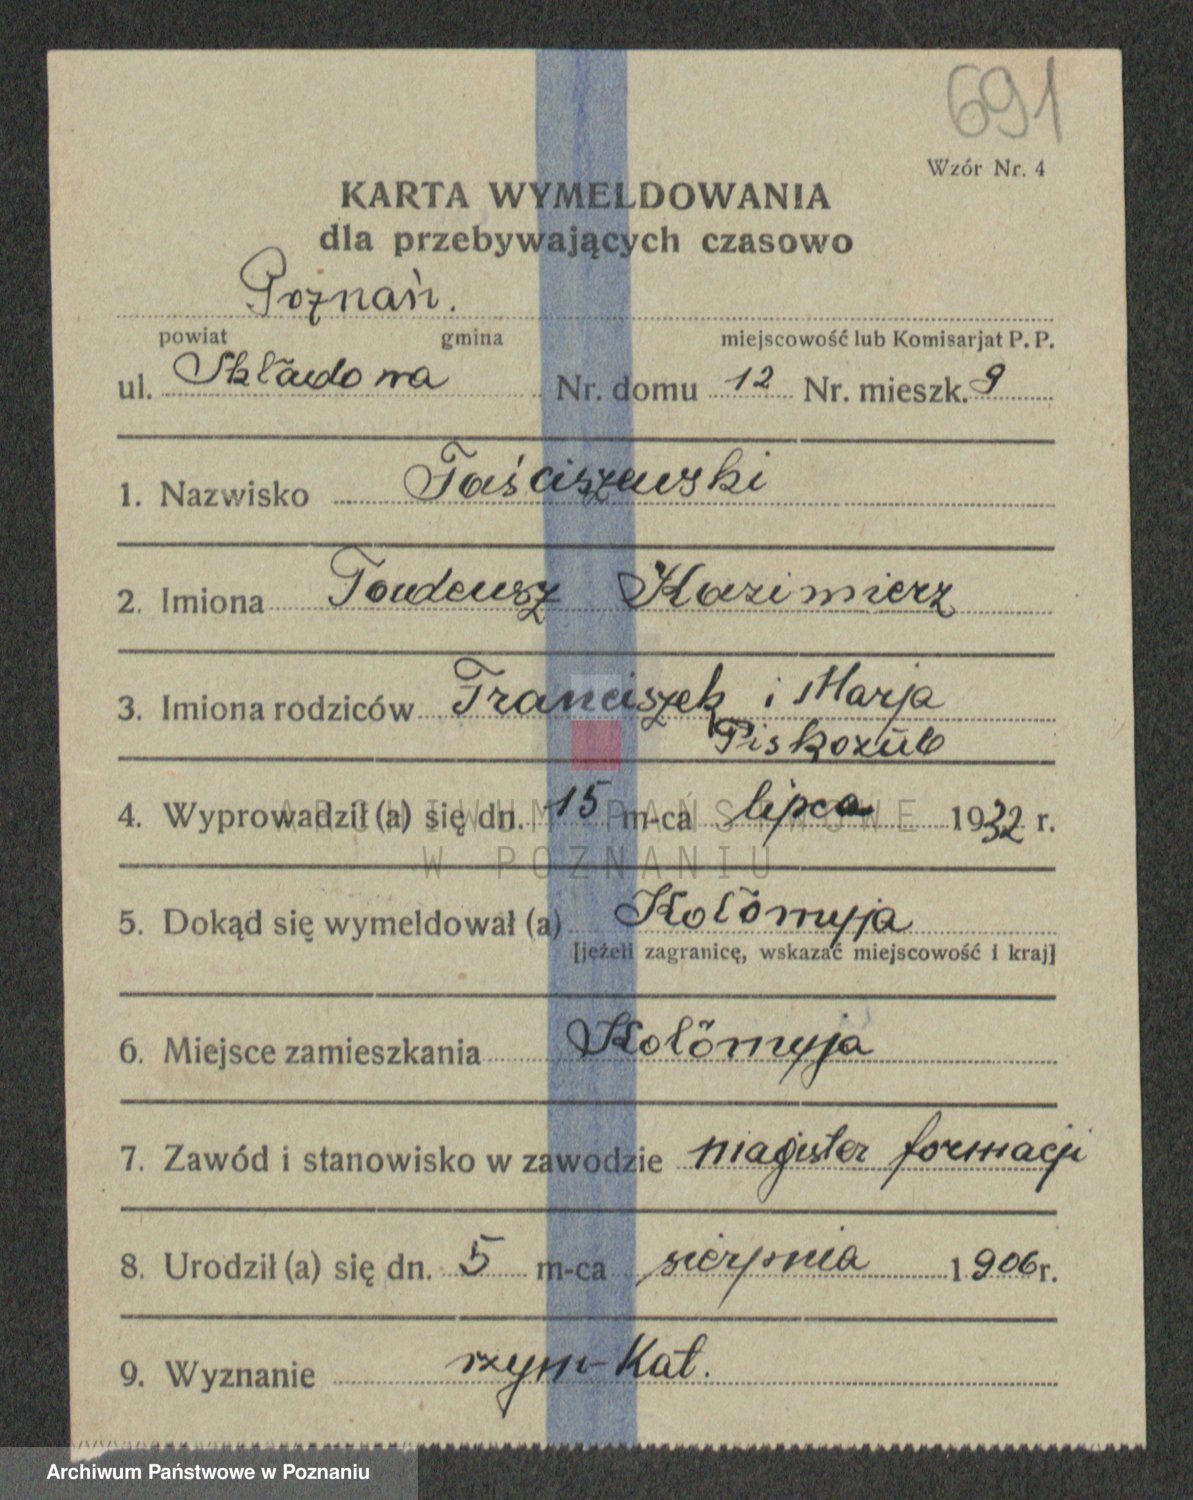 691
Wzór Nr. 4
KARTA WYMELDOWANIA
dla przebywających czasowo
Poznań.
powiat gmina miejscowość lub Komisarjat P. P.
ul. Składowa Nr. domu 12 Nr. mieszk. 9
1. Nazwisko Taściszewski
2. Imiona Tadeusz Kazimierz
3. Imiona rodziców Franciszek i Marja
Piskozub
4. Wyprowadził (a) się dn. 15 m-ca lipca 1932 r.
ARCHIWUM PAŃSTWOWE
W POZNANIU
5. Dokąd się wymeldował (a) Kołomyja
[jeżeli zagranicę, wskazać miejscowość i kraj]
6. Miejsce zamieszkania Kołomyja
7. Zawód i stanowisko w zawodzie magister formacji
8. Urodził (a) się dn. 5 m-ca sierpnia 1906 r.
9. Wyznanie rzym-Kat.
Archiwum Państwowe w Poznaniu